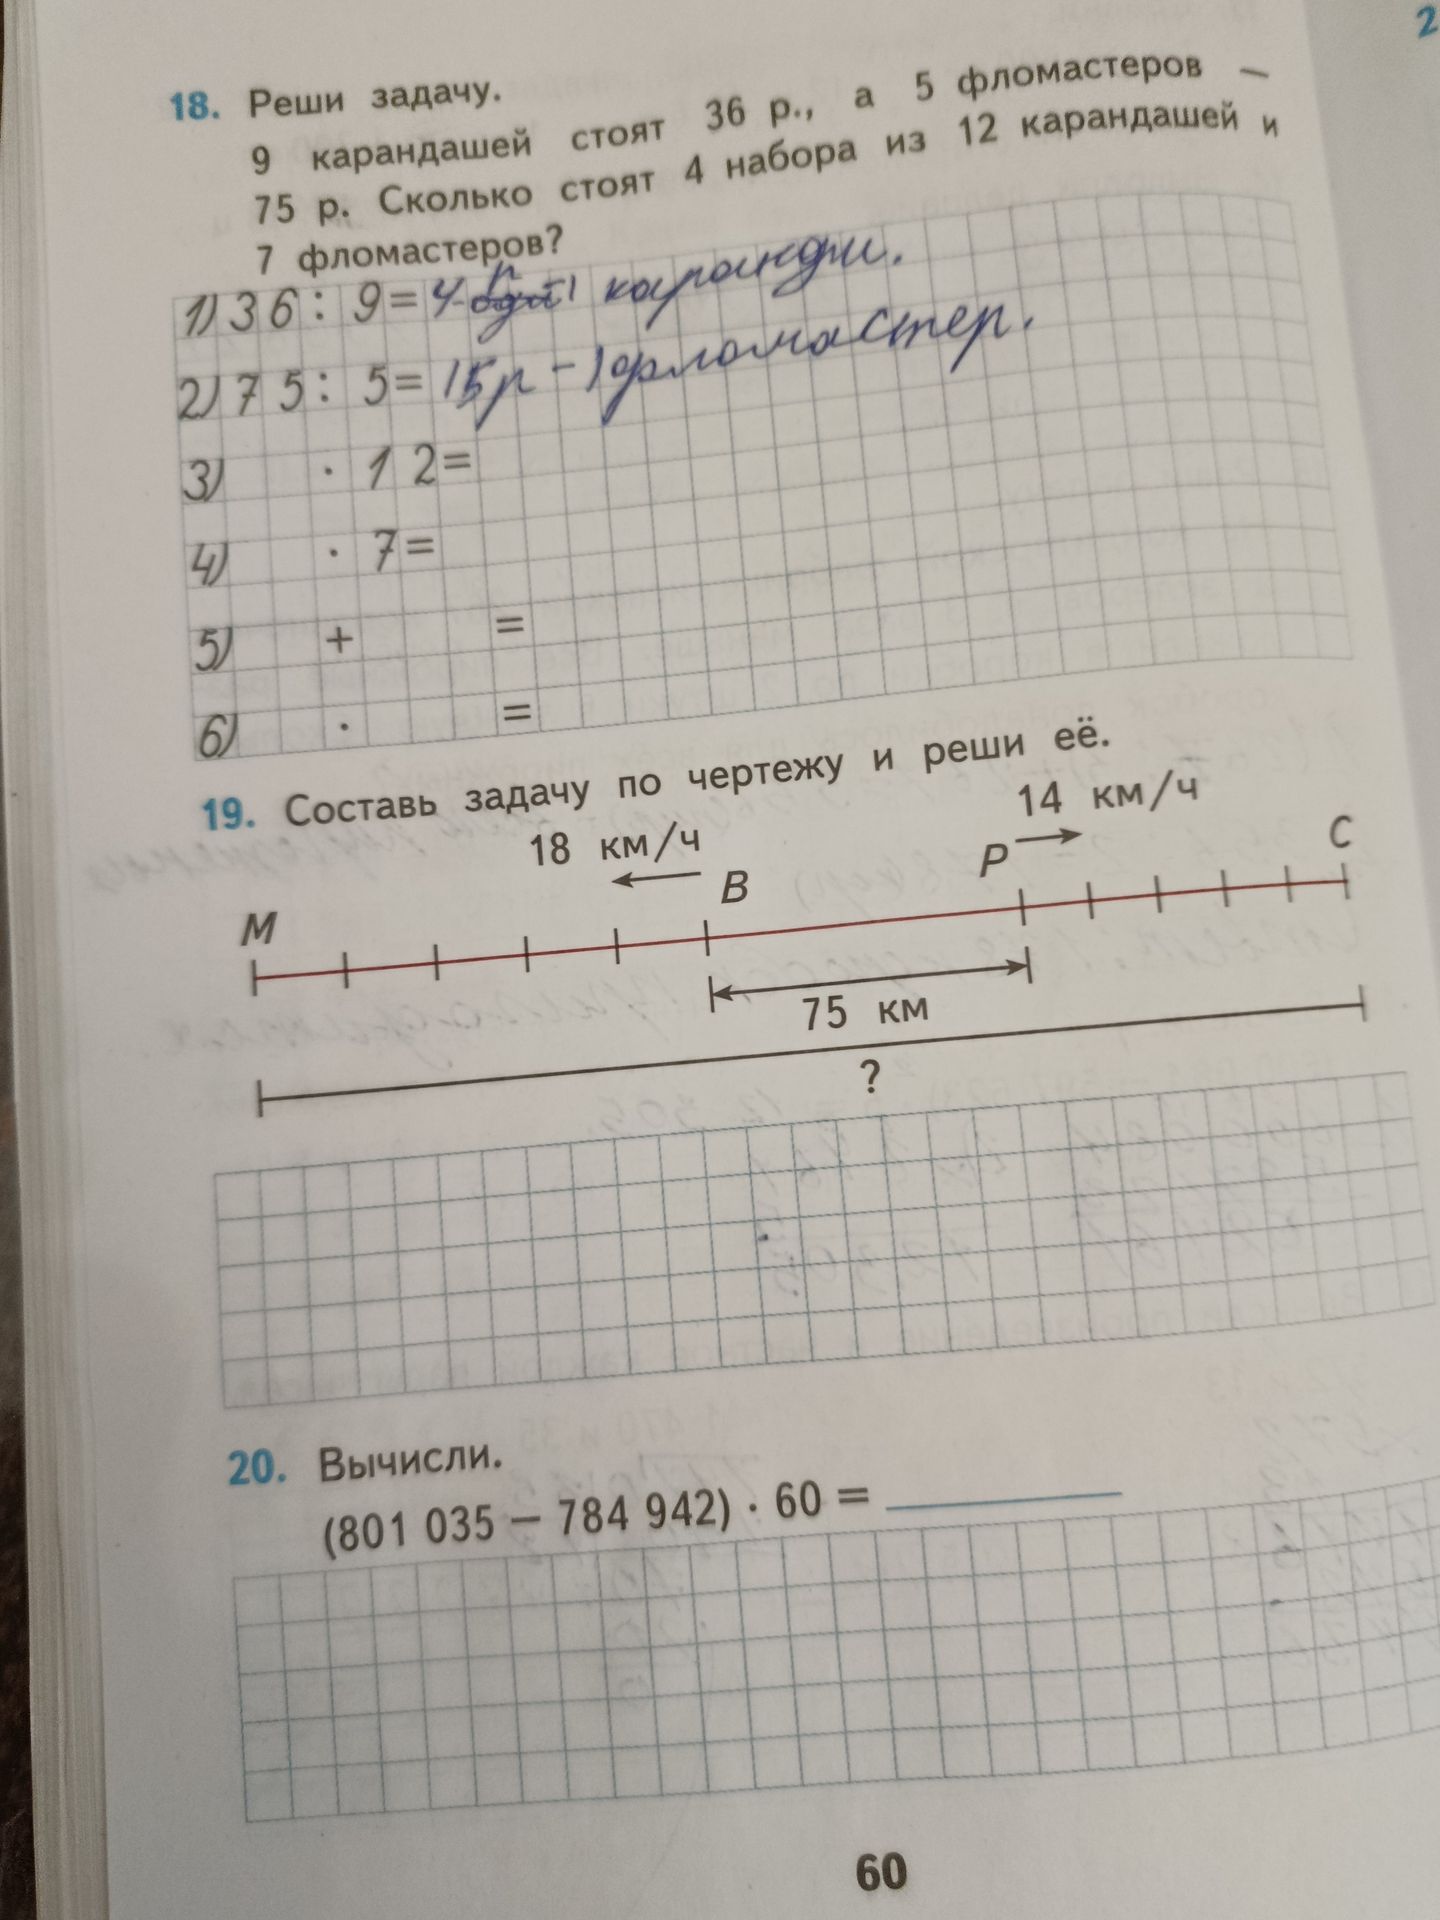 2
18. Реши задачу.
9 карандашей стоят 36 р., а 5 фломастеров –
75 р. Сколько стоят 4 набора из 12 карандашей и
7 фломастеров?
1) 36 : 9 = 4 р 1 карандаш.
2) 75 : 5 = 15р - 1 фломастер.
3) · 12 =
4) · 7 =
5) + =
6) · =
19. Составь задачу по чертежу и реши её.
18 км/ч 14 км/ч
М В Р С
75 км
?
20. Вычисли.
(801 035 – 784 942) · 60 =
60